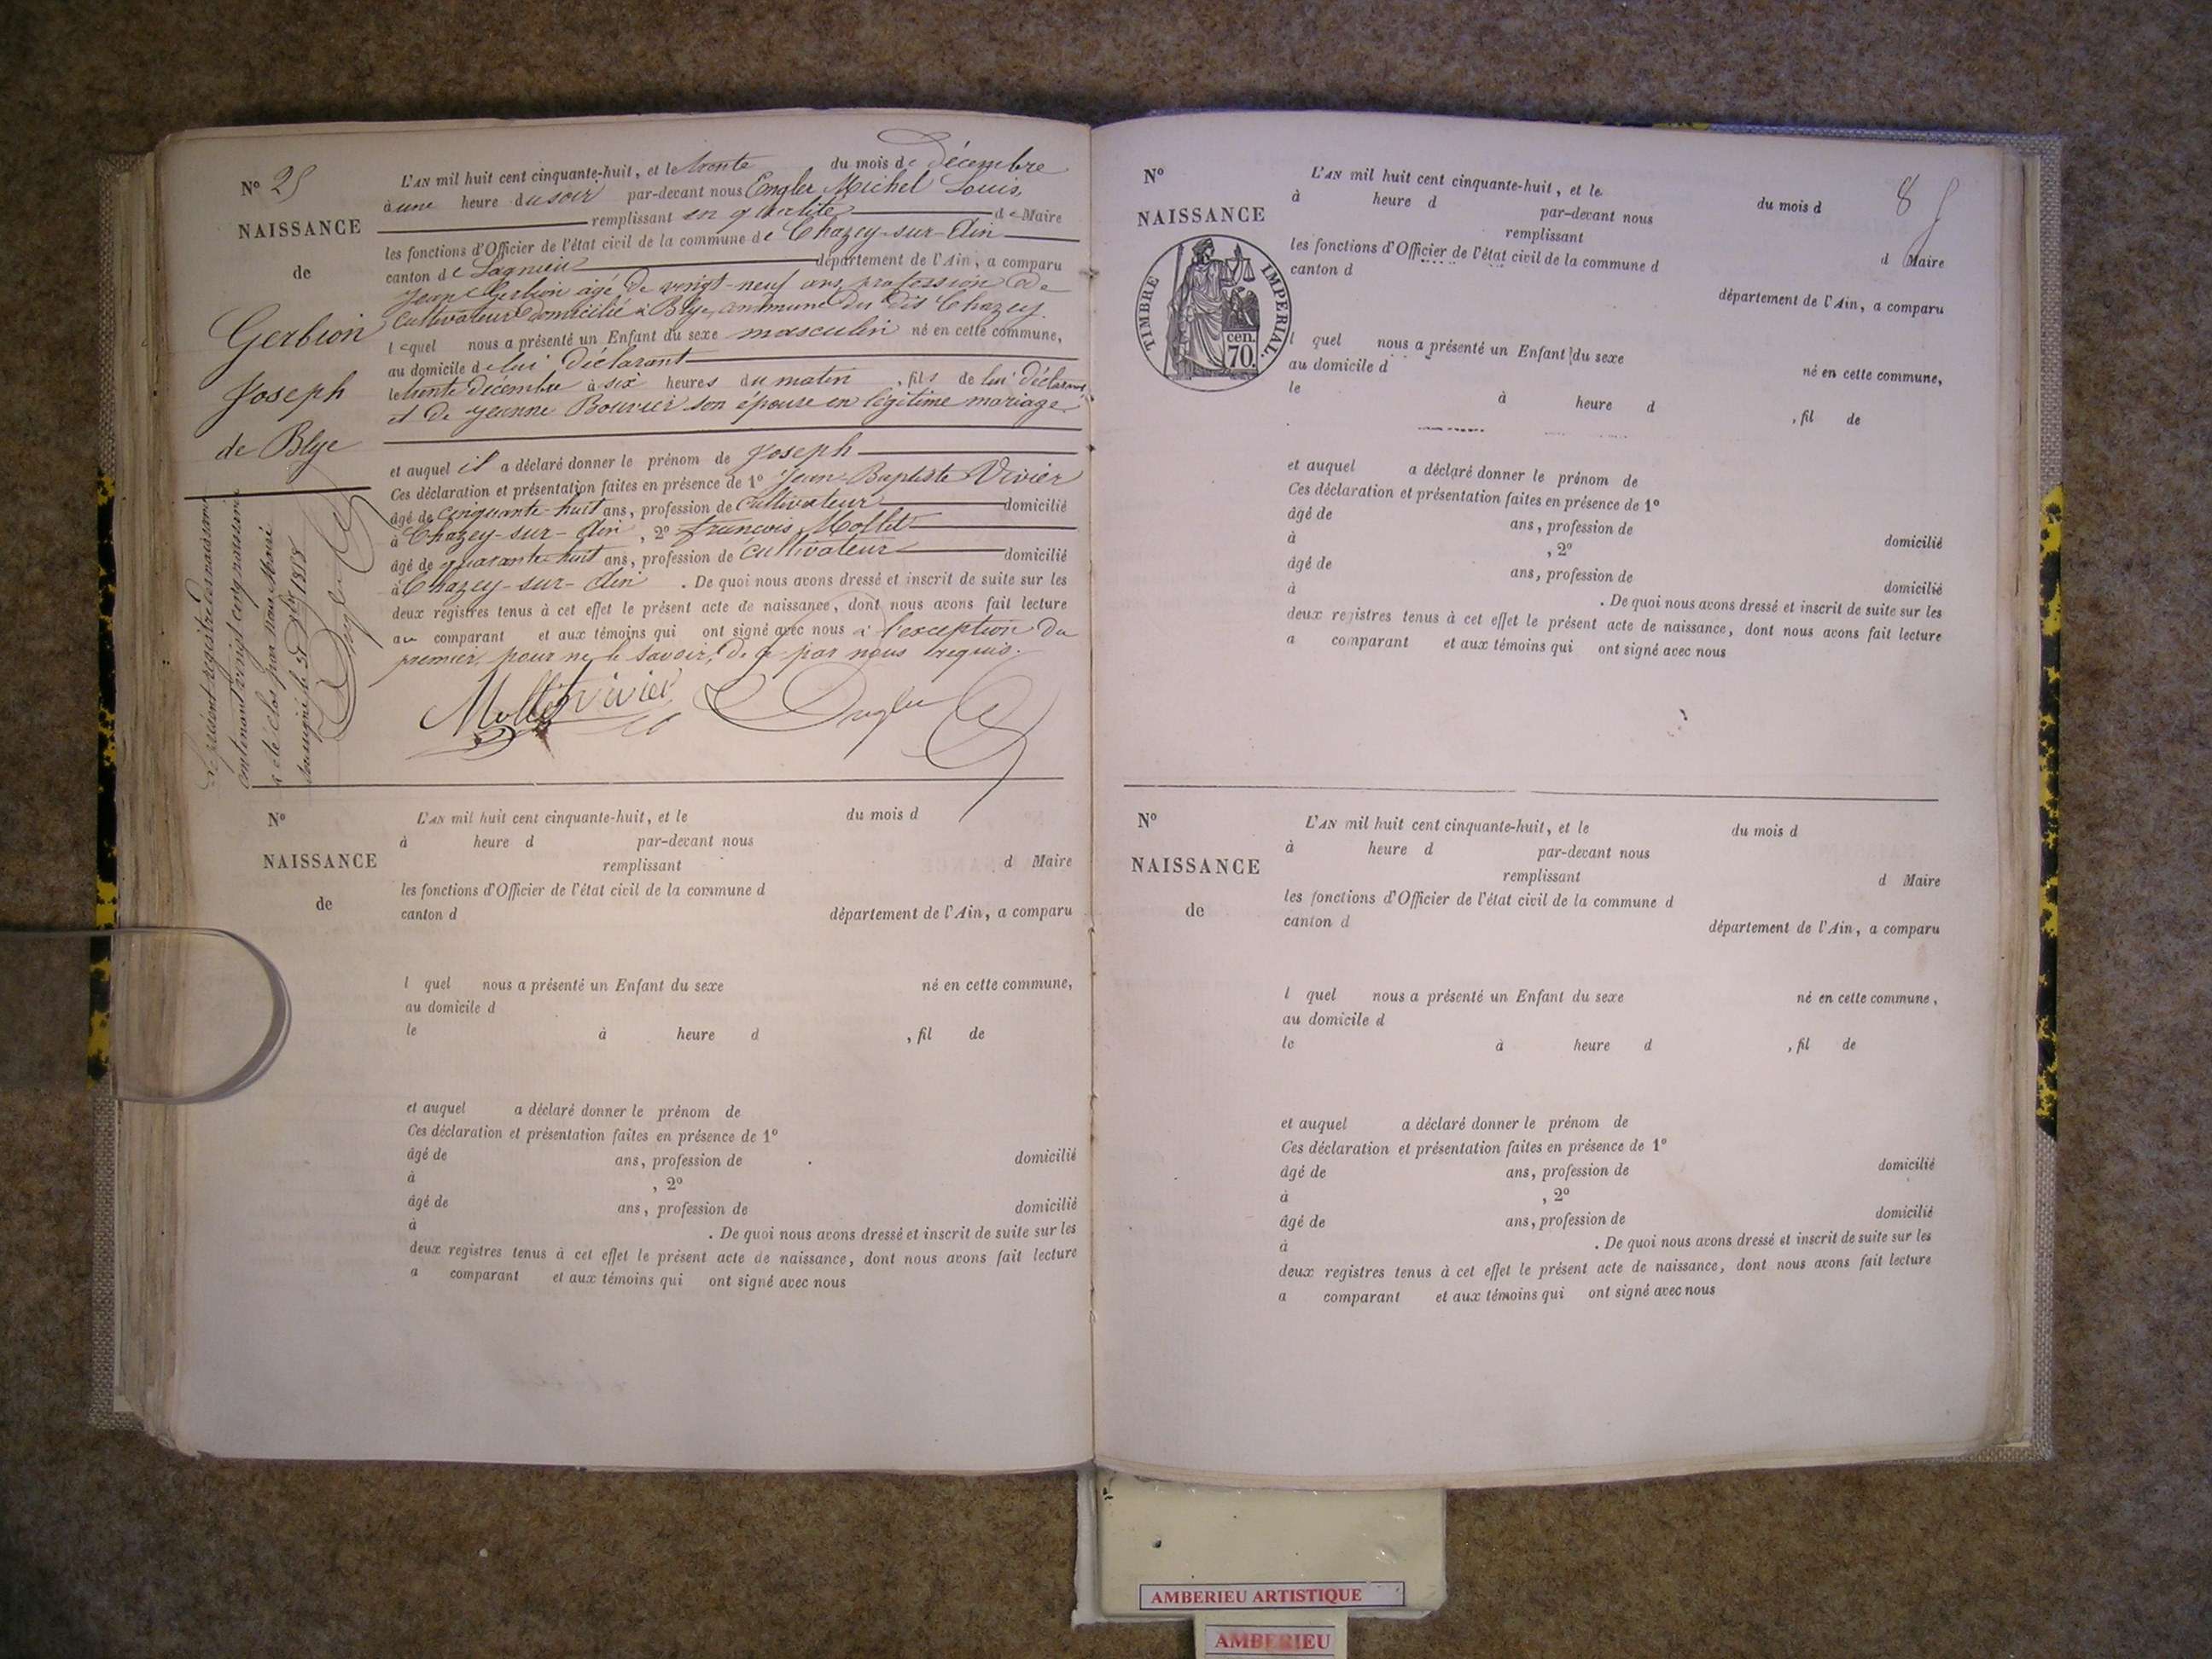 N° 25
NAISSANCE
de
Gerbion
Joseph
de Blye
Le présent registre des naissances
contenant vingt cinq naissances
a été clos par nous Maire
soussigné le 31 Xbre 1858
Engler
L'AN mil huit cent cinquante-huit, et le trente du mois de décembre
à une heure du soir par-devant nous Engler Michel Louis,
remplissant en qualité de Maire
les fonctions d'Officier de l'état civil de la commune de Chazey-sur-Ain
canton de Lagnieu département de l'Ain, a comparu
Jean Gerbion âgé de vingt-neuf ans, profession de
Cultivateur domicilié à Blye, commune du dit Chazey.
lequel nous a présenté un Enfant du sexe masculin né en cette commune,
au domicile de lui déclarant
le trente décembre à six heures du matin, fils de lui déclarant
et de Jeanne Bouvier son épouse en légitime mariage
et auquel il a déclaré donner le prénom de Joseph
Ces déclaration et présentation faites en présence de 1° Jean-Baptiste Vivier
âgé de cinquante-huit ans, profession de Cultivateur domicilié
à Chazey-sur-Ain, 2° françois Mollet
âgé de quarante-huit ans, profession de Cultivateur domicilié
à Chazey-sur-Ain. De quoi nous avons dressé et inscrit de suite sur les
deux registres tenus à cet effet le présent acte de naissance, dont nous avons fait lecture
au comparant et aux témoins qui ont signé avec nous à l'exception du
premier, pour ne le savoir, de ce par nous requis.
Mollet Vivier Engler
N°
NAISSANCE
de
L'AN mil huit cent cinquante-huit, et le du mois d
à heure d par-devant nous
remplissant d Maire
les fonctions d'Officier de l'état civil de la commune d
canton d département de l'Ain, a comparu
l quel nous a présenté un Enfant du sexe né en cette commune,
au domicile d
le à heure d , fil de
et auquel a déclaré donner le prénom de
Ces déclaration et présentation faites en présence de 1°
âgé de ans, profession de domicilié
à , 2°
âgé de ans, profession de domicilié
à . De quoi nous avons dressé et inscrit de suite sur les
deux registres tenus à cet effet le présent acte de naissance, dont nous avons fait lecture
a comparant et aux témoins qui ont signé avec nous
8
N°
NAISSANCE
TIMBRE IMPERIAL.
cen.
70.
L'AN mil huit cent cinquante-huit, et le du mois d
à heure d par-devant nous
remplissant d Maire
les fonctions d'Officier de l'état civil de la commune d
canton d département de l'Ain, a comparu
l quel nous a présenté un Enfant du sexe né en cette commune,
au domicile d
le à heure d , fil de
et auquel a déclaré donner le prénom de
Ces déclaration et présentation faites en présence de 1°
âgé de ans, profession de domicilié
à , 2°
âgé de ans, profession de domicilié
à . De quoi nous avons dressé et inscrit de suite sur les
deux registres tenus à cet effet le présent acte de naissance, dont nous avons fait lecture
a comparant et aux témoins qui ont signé avec nous
N°
NAISSANCE
de
L'AN mil huit cent cinquante-huit, et le du mois d
à heure d par-devant nous
remplissant d Maire
les fonctions d'Officier de l'état civil de la commune d
canton d département de l'Ain, a comparu
l quel nous a présenté un Enfant du sexe né en cette commune,
au domicile d
le à heure d , fil de
et auquel a déclaré donner le prénom de
Ces déclaration et présentation faites en présence de 1°
âgé de ans, profession de domicilié
à , 2°
âgé de ans, profession de domicilié
à . De quoi nous avons dressé et inscrit de suite sur les
deux registres tenus à cet effet le présent acte de naissance, dont nous avons fait lecture
a comparant et aux témoins qui ont signé avec nous
AMBERIEU ARTISTIQUE
AMBERIEU